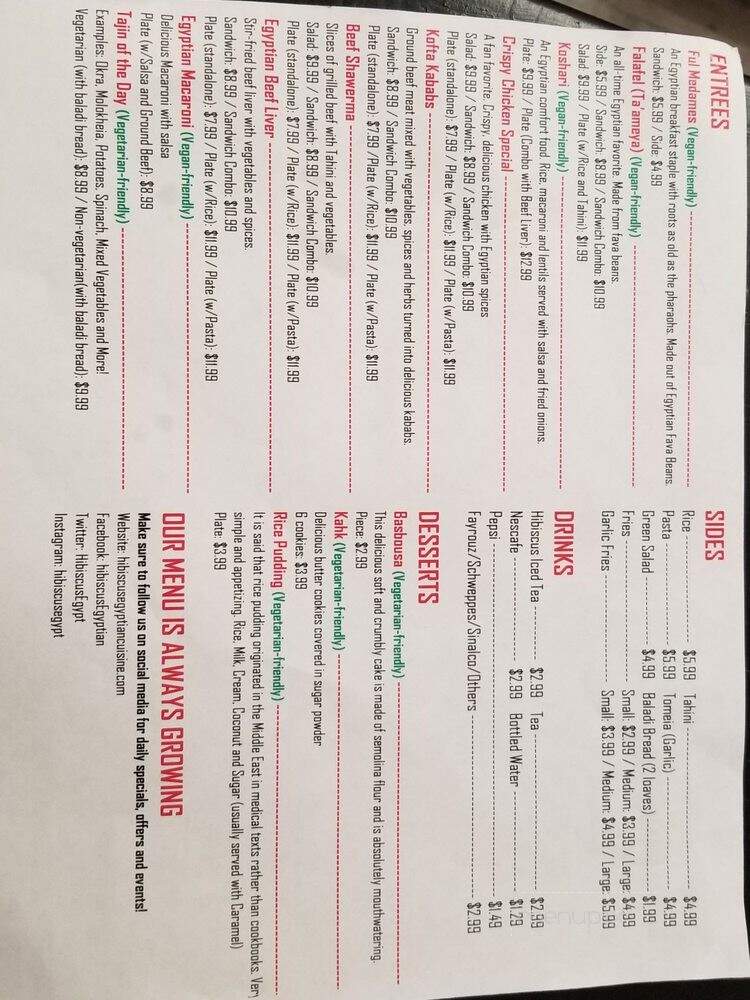 ENTREES
Ful Medames (Vegan-friendly)
An Egyptian breakfast staple with roots as old as the pharaohs. Made out of Egyptian Fava Beans.
Sandwich: $5.99 / Side: $4.99
Falafel (Ta'ameya) (Vegan-friendly)
An all-time Egyptian favorite. Made from fava beans.
Side: $5.99 / Sandwich: $8.99 / Sandwich Combo: $10.99
Salad: $9.99 / Plate (w/Rice and Tahini): $11.99
Koshari (Vegan-friendly)
An Egyptian comfort food. Rice, macaroni and lentils served with salsa and fried onions.
Plate: $9.99 / Plate (Combo with Beef Liver): $12.99
Crispy Chicken Special
A fan favorite. Crispy, delicious chicken with Egyptian spices
Salad: $9.99 / Sandwich: $8.99 / Sandwich Combo: $10.99
Plate (standalone): $7.99 / Plate (w/Rice): $11.99 / Plate (w/Pasta): $11.99
Kofta Kababs
Ground beef meat mixed with vegetables, spices and herbs turned into delicious kababs.
Sandwich: $8.99 / Sandwich Combo: $10.99
Plate (standalone): $7.99 /Plate (w/Rice): $11.99 / Plate (w/Pasta): $11.99
Beef Shawerma
Slices of grilled beef with Tahini and vegetables.
Salad: $9.99 / Sandwich: $8.99 / Sandwich Combo: $10.99
Plate (standalone): $7.99 / Plate (w/Rice): $11.99 / Plate (w/Pasta): $11.99
Egyptian Beef Liver
Stir-fried beef liver with vegetables and spices.
Sandwich: $8.99 / Sandwich Combo: $10.99
Plate (standalone): $7.99 / Plate (w/Rice): $11.99 / Plate (w/Pasta): $11.99
Egyptian Macaroni (Vegan-friendly)
Delicious Macaroni with salsa
Plate (w/Salsa and Ground Beef): $8.99
Tajin of the Day (Vegetarian-friendly)
Examples: Okra, Molukheia, Potatoes, Spinach, Mixed Vegetables and More!
Vegetarian (with baladi bread): $8.99 / Non-vegetarian(with baladi bread): $9.99
SIDES
Rice $5.99 Tahini $4.99
Pasta $5.99 Tomeia (Garlic) $4.99
Green Salad $4.99 Baladi Bread (2 loaves) $1.99
Fries Small: $2.99 / Medium: $3.99 / Large: $4.99
Garlic Fries Small: $3.99 / Medium: $4.99 / Large: $5.99
DRINKS
Hibiscus Iced Tea $2.99 Tea $2.99
Nescafe $2.99 Bottled Water $1.29
Pepsi $1.49
Fayrouz/Schweppes/Sinalco/Others $2.99
DESSERTS
Basbousa (Vegetarian-friendly)
This delicious soft and crumbly cake is made of semolina flour and is absolutely mouthwatering.
Piece: $2.99
Kahk (Vegetarian-friendly)
Delicious butter cookies covered in sugar powder
6 cookies: $3.99
Rice Pudding (Vegetarian-friendly)
It is said that rice pudding originated in the Middle East in medical texts rather than cookbooks. Very
simple and appetizing. Rice, Milk, Cream, Coconut and Sugar (usually served with Caramel)
Plate: $3.99
OUR MENU IS ALWAYS GROWING
Make sure to follow us on social media for daily specials, offers and events!
Website: hibiscusegyptiancuisine.com
Facebook: hibiscusEgyptian
Twitter: HibiscusEgypt
Instagram: hibiscusegypt